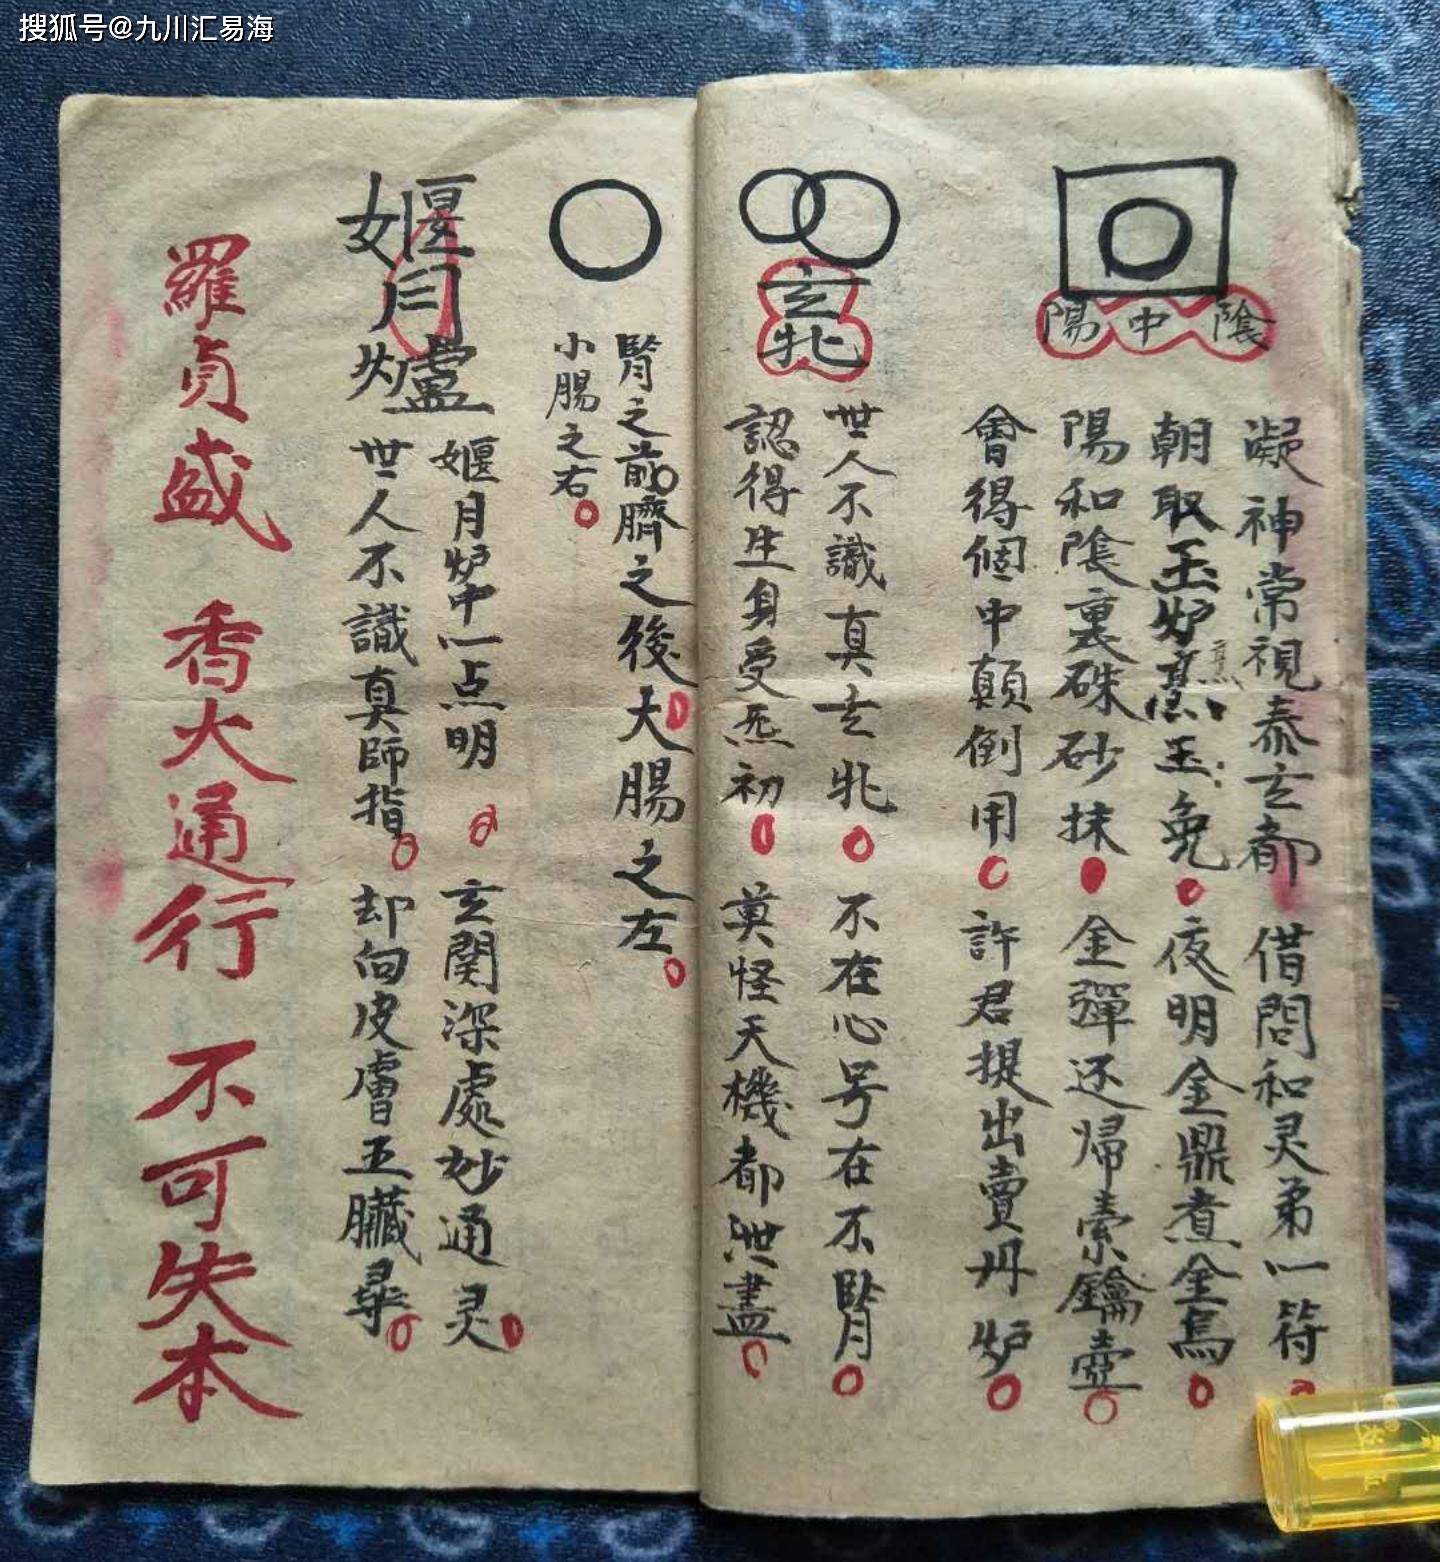 搜狐号@九川汇易海
陽中陰
凝神常視泰玄都 借問和灵弟一符
朝取玉炉烹玉兔 夜明金鼎煮金烏
陽和陰裏硃砂抹 金彈还歸索鑰壺
會得個中顛倒用 許君提出賣丹炉
玄牝
世人不識真玄牝 不在心号在不腎
認得生身受炁初 莫怪天機都泄盡
腎之前臍之後大腸之左
小腸之右
媻月炉中一点明 玄関深處妙通灵
世人不識真師指 却向皮膚五臟尋
羅貞盛 香火通行 不可失本